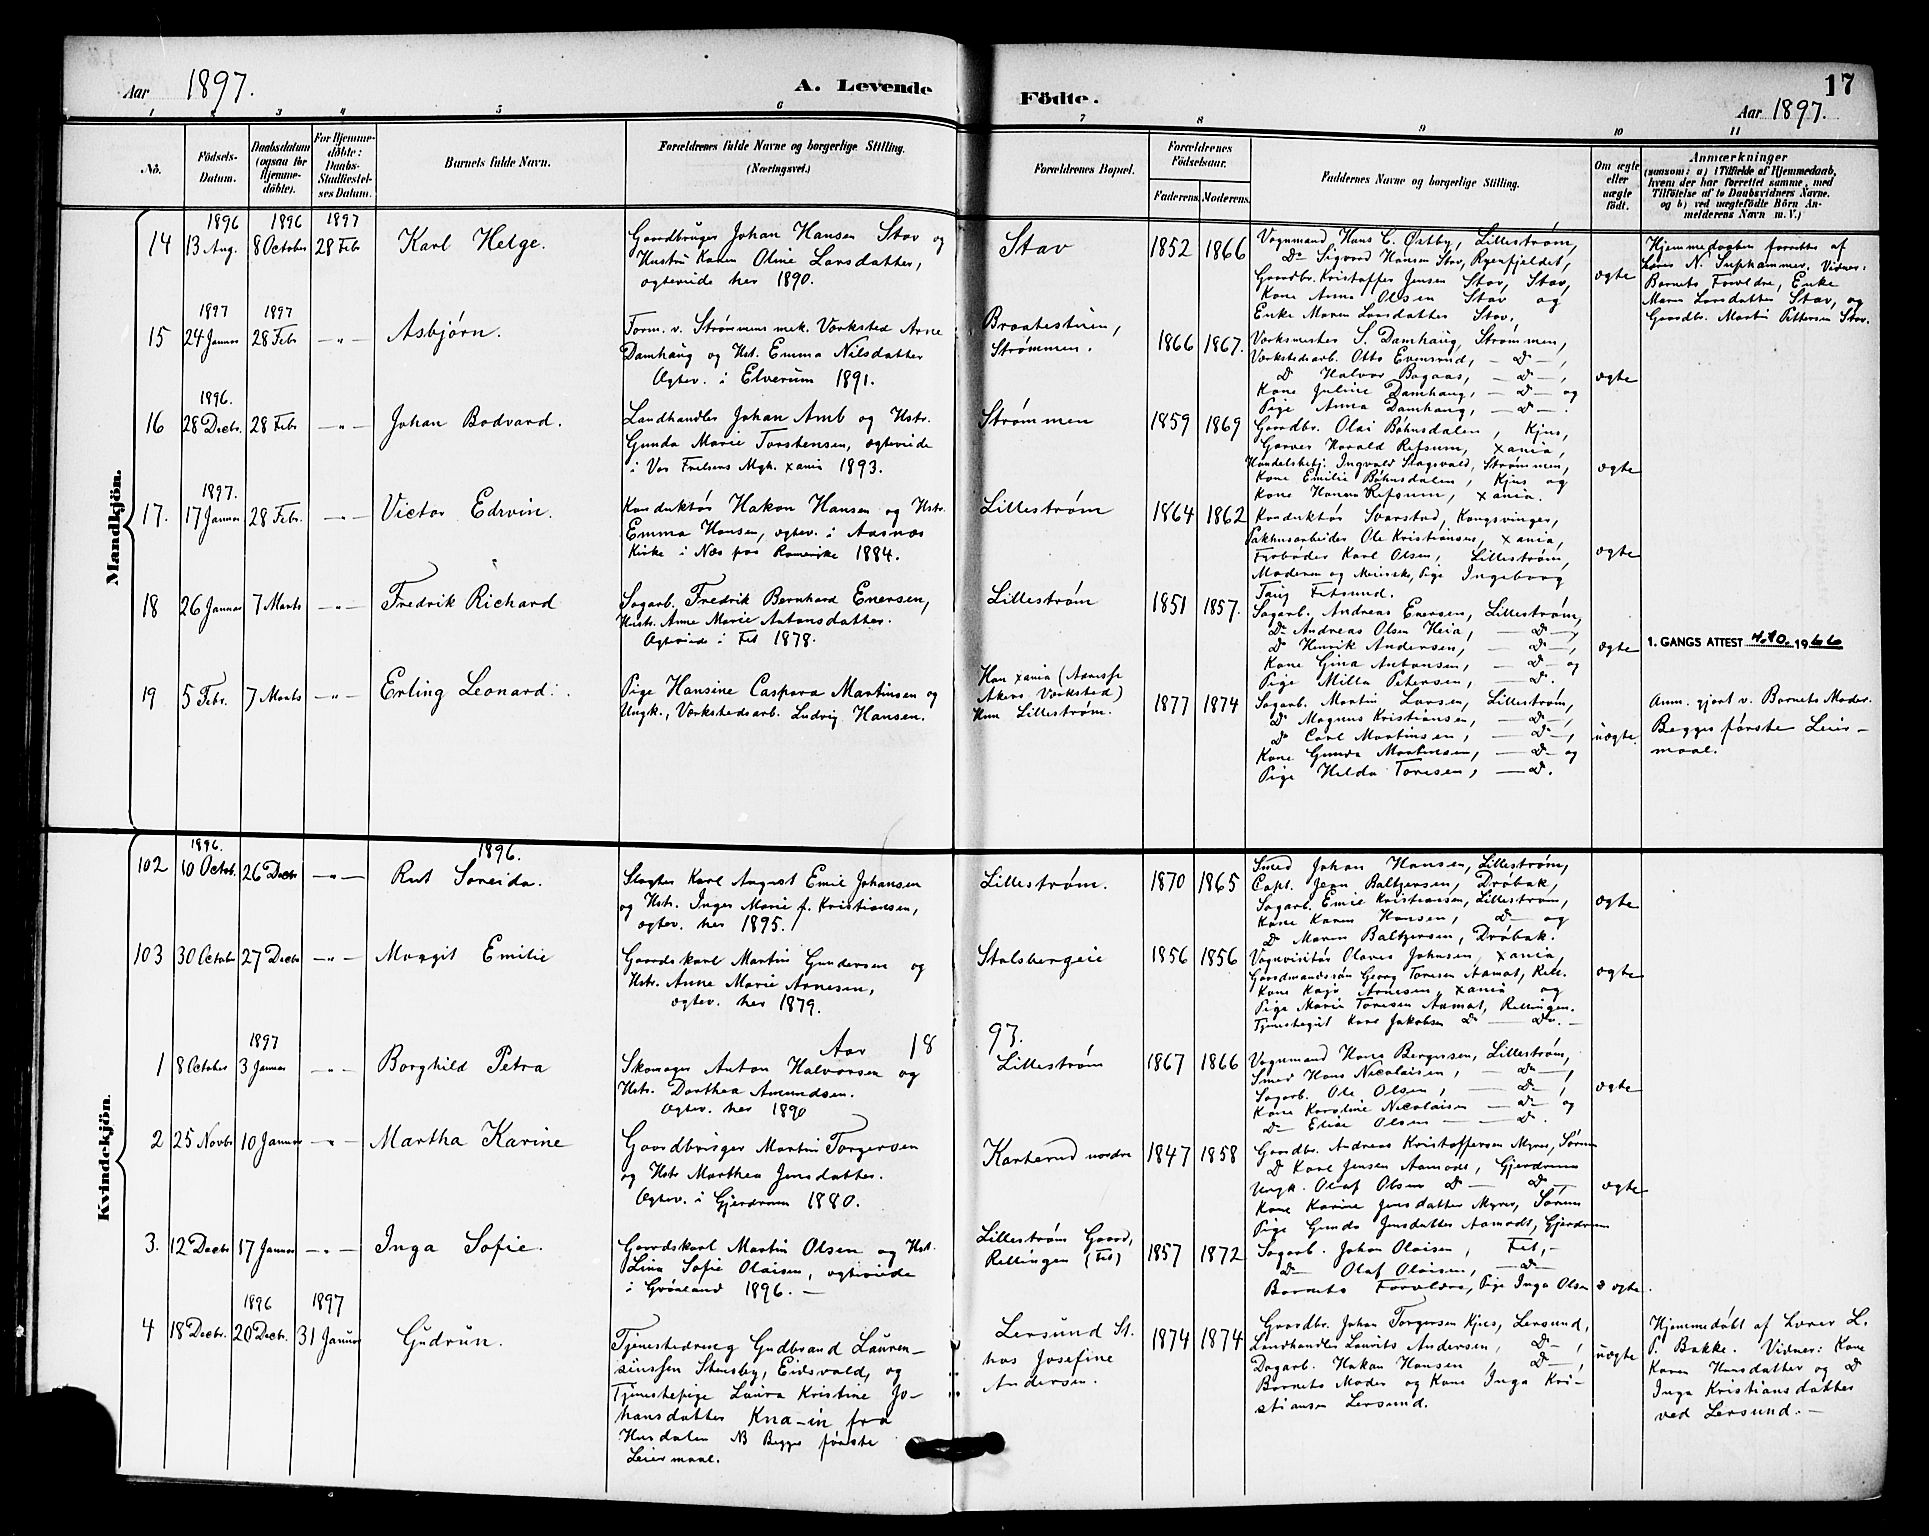 Aar 1897.
A. Levende
Födte.
17
Aar 1897.
1 2 3 4 5 6 7 8 9 10 11
No.
Födsels-
Datum.
Daabsdatum
(ogsaa for
Hjemme-
döbte).
For Hjemme-
döbte:
Daabs-
Stadfæstel-
ses Datum.
Barnets fulde Navn.
Forældrenes fulde Navne og borgerlige Stilling.
(Næringsvei.)
Forældrenes Bopæl.
Forældrenes
Födselsaar.
Faderens. Moderens.
Faddernes Navne og borgerlige Stilling.
Om ægte
eller
uægte
födt.
Anmærkninger
(saasom: a) i Tilfælde af Hjemmedaab,
hvem der har forrettet samme, med
Tilföielse af to Daabsvidners Navne.
og b) ved uægtefödte Börn An-
melderens Navn m. V.)
Mandkjön.
1896 1896 1897
14 13 Aug. 8 October 28 Febr Karl Helge.
Gaardbruger Johan Hansen Stav og
Hustru Karen Oline Larsdatter,
ægteviede her 1890.
Stav
1852 1866
Vognmand Hans C. Østby, Lillestrøm,
Do Sigvard Hansen Stav, Ryenfjeldet,
Gaardbr. Kristoffer Jensen Stav, Stav,
Kone Anna Olsen Stav og
Enke Maren Larsdatter Stav.
ægte
Hjemmedaaben forrettet af
Lærer N. Suphammer. Vidner:
Barnets Forældre, Enke
Maren Larsdatter Stav, og
Gaardbr. Martin Pettersen Stav.
1897 1897
15 24 Januar 28 Febr —"— Asbjørn.
Form. v. Strømmens mek. Værksted Arne
Damhaug og Hst. Emma Nilsdatter
Ægtev. i Elverum 1891.
Braatestuen,
Strømmen.
1866 1867.
Værksmester S. Damhaug, Strømmen,
Værkstedsarb. Otto Evensrud, — D —,
D Halvor Bagaas, — D —,
Kone Juline Damhaug, — D — og
Pige Anna Damhaug, — D —.
ægte
1896.
16 28 Decbr. 28 Febr —"— Johan Bodvard.
Landhandler Johan Amb og Hstr.
Gunda Marie Torstensen, ægteviede
i Vor Frelsers Mgh. Xania 1893.
Strømmen
1859 1869
Gaardbr. Olai Bøhnsdalen, Kjus,
Garver Harald Refsum, Xania,
Handelsbetj. Ingvald Stagsvald, Strømmen,
Kone Emilie Bøhnsdalen, Kjus og
Kone Hanna Refsum, Xania.
ægte
1897.
17. 17 Januar 28 Febr. —"— Victor Edvin.
Konduktør Hakon Hansen og Hstr.
Emma Hansen, ægtev. i Aasnes
Kirke i Næs paa Romerike 1884.
Lillestrøm
1864 1862
Konduktør Svarstad, Kongsvinger,
Pakhusarbeider Ole Kristiansen, Xania,
Fyrbøder Karl Olsen, Lillestrøm,
Moderen og Pige Ingeborg
Fetsund.
ægte
18 26 Januar 7 Marts —"— Fredrik Richard
Sagarb. Fredrik Bernhard Enersen,
Hustr. Anne Marie Antonsdatter.
Ægteviede i Fet 1878.
Lillestrøm
1851 1857.
Sagarb. Andreas Enersen, Lillestrøm,
Do Andreas Olsen Heia, — D —,
D Henrik Andersen, — D —,
Kone Gina Antonsen, — D — og
Pige Milla Petersen, — D.
ægte
1. GANGS ATTEST 4.10. 1966
19 5 Febr. 7 Marts —"— Erling Leonard.
Pige Hansine Caspara Martinsen og
Ungk., Værkstedsarb. Ludvig Hansen.
Han Xania
Akers Værksted)
Hun Lillestrøm.
1877 1874
Sagarb. Martin Larsen, Lillestrøm,
D Magnus Kristiansen, — D —,
D Carl Martinsen, — D —,
Kone Gunda Martinsen, — D — og
Pige Hilda Toresen, — D.
uægte.
Anm. gjort v. Barnets Moder.
Begges første Leier-
maal.
Kvindekjön.
1896. 1896.
102 10 Octob. 26 Decbr —"— Rut Soreida.
Slagter Karl August Emil Johansen
og Hstr. Inger Marie f. Kristiansen,
ægtev. her 1895.
Lillestrøm.
1870 1865
Smed Johan Hansen, Lillestrøm,
Capt. Jean Baltzersen, Drøbak,
Sagarb. Emil Kristiansen, Lillestrøm,
Kone Karen Hansen, D — og
D Maren Baltzersen, Drøbak.
ægte
103 30 Octobr 27 Decbr —"— Margit Emilie
Gaardskarl Martin Gundersen og
Hstr. Anne Marie Arnesen,
ægtev. her 1879.
Stalsbergeie
1856 1856
Vognvisitør Olaves Johnsen, Xania,
Gaardmandssøn Georg Toresen Aamot, Rell.
Kone Kaja Arnesen, Xania og
Pige Marie Toresen Aamot, Rellingen.
Tjenestegut Jakobsen D — D.
ægte
Aar 18 97.
1897
1 8 October 3 Januar —"— Borghild Petra
Skomager Anton Halvorsen og
Hstr. Dorthea Amundsen.
Ægtev. her 1890
Lillestrøm
1867 1866
Vognmand Hans Bergersen, Lillestrøm,
Smed Hans Nicolaisen, — D —,
Sagarb. Ole Olsen, — D —,
Kone Karoline Nicolaisen — D — og
D — Elise Olsen — D.
ægte
2 25 Novbr 10 Januar —"— Martha Karine
Gaardbruger Martin Torgersen
og Hstr. Marthea Jensdatter.
Ægtev. i Gjerdrum 1880.
Karterud nordre
1847 1858
Gaardbr. Andreas Kristoffersen Myrer, Sørum
D Karl Jensen Aamodt, Gjerdrum
Ungk. Olaf Olsen D — D —
Kone Karine Jensdatter Myrer, Sørum
Pige Gunda Jensdatter Aamodt, Gjerdrum
ægte
3. 12 Decbr 17 Januar —"— Inga Sofie.
Gaardskarl Martin Olsen og Hst.
Lina Sofie Olaisen, ægteviede
i Grønland 1896. —
Lillestrøm Gaard,
Rellingen (Fet)
1857 1872
Sagarb. Johan Olaisen, Fet,
D — Olaf Olaisen, — D —
Barnets Forældre, Pige Inga Olsen
ægte.
1896 1897
4 18 Decbr. 20 Decbr. 31 Januar Gudrun.
Tjenestedreng Gudbrand Lauren-
sinssen Stensby, Eidsvold, og
Tjenestepige Laura Kristine Jo-
hansdatter Kna-in fra
Hurdalen NB Begges første
Leiermaal.
Lersund St.
hos Josefine
Andersen.
1874 1874
Gaardbr. Johan Torgersen Kjus, Lersund,
Landhandler Laurits Andersen, D —,
Dagarb. Hakan Hansen, D —,
Barnets Moder og Kone Inga Kri-
stiansen Lersund.
uægte
Hjemmedøbt af Lærer L.
P. Bakke. Vidner: Kone
Karen Hansdatter og D
Inga Kristiansdatter
ved Lersund. —